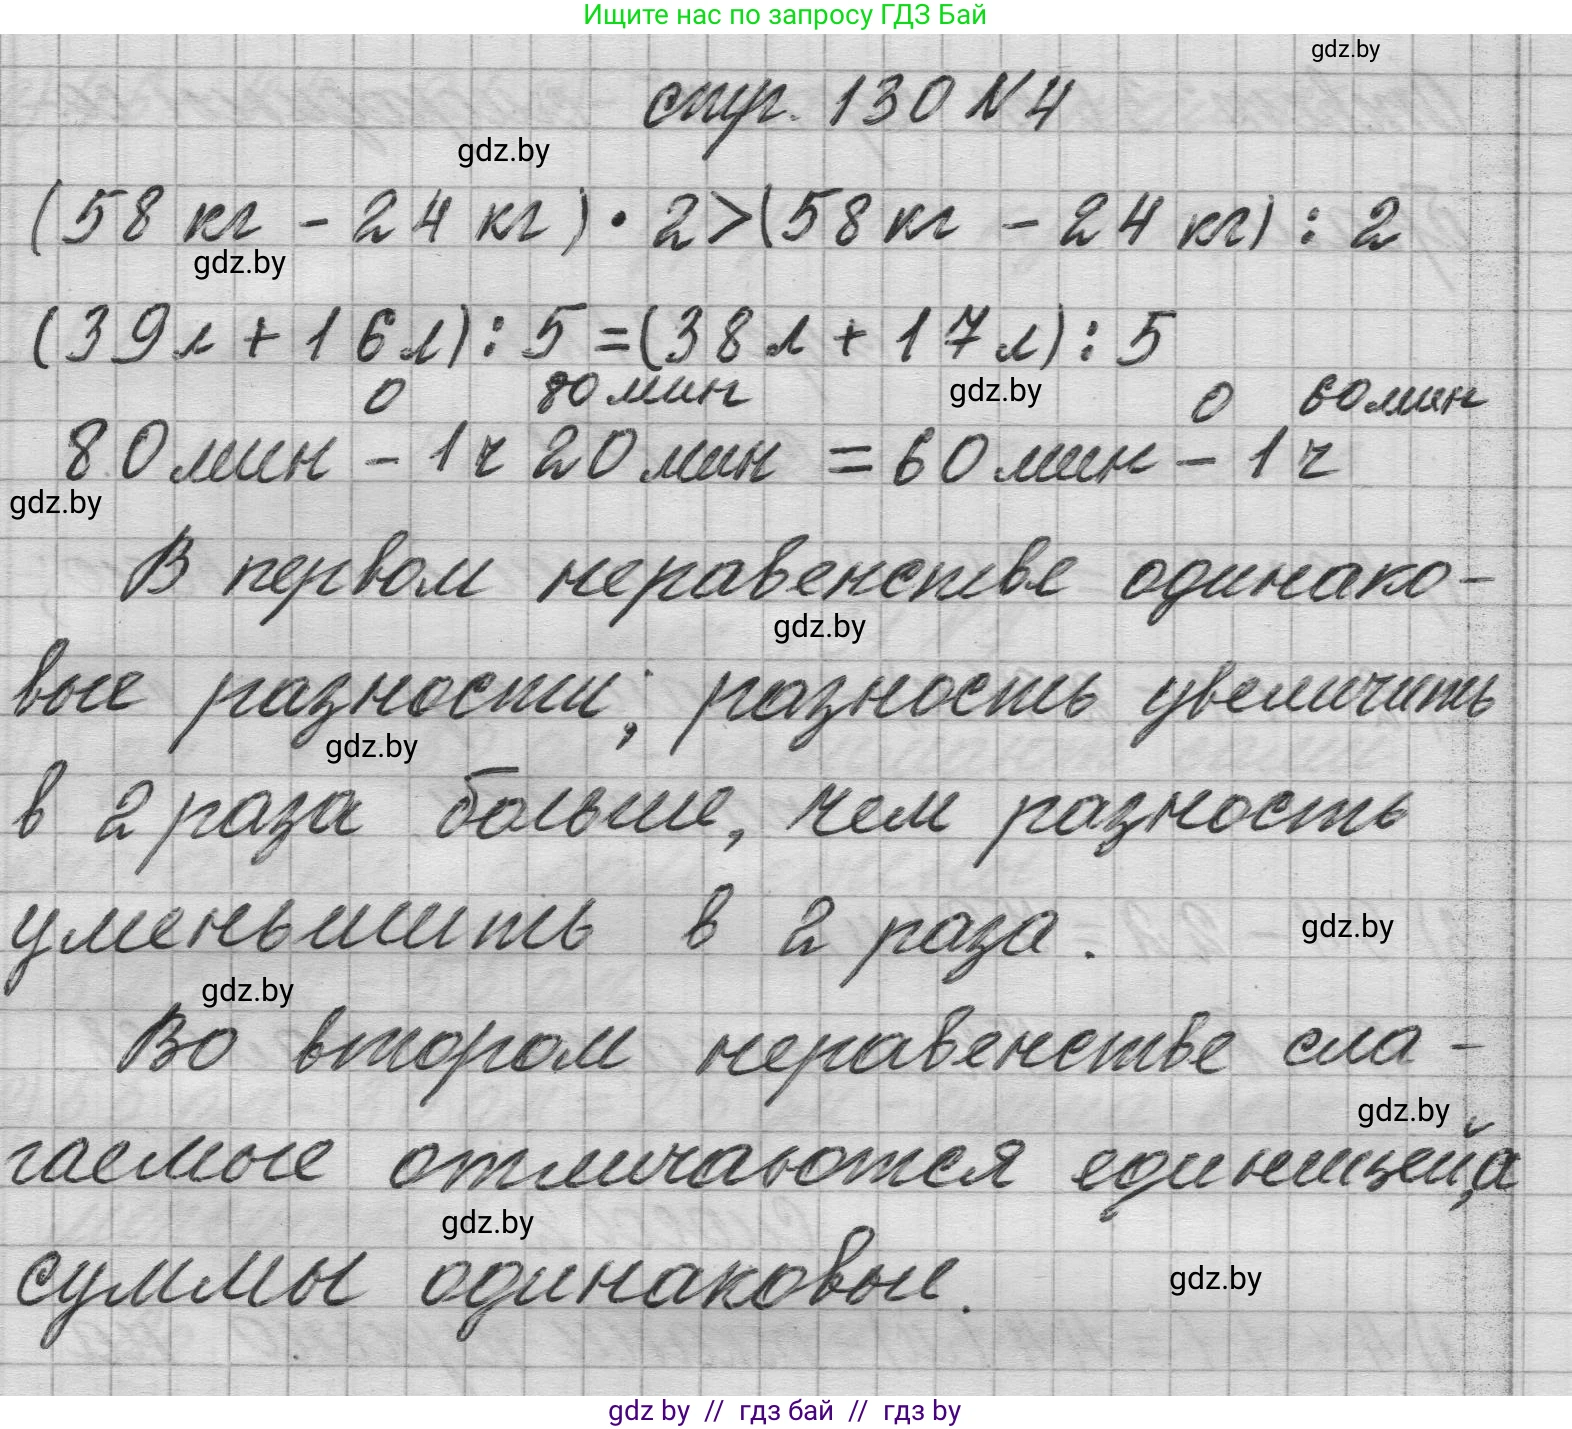 Ищите нас по запросу ГДЗ Бай
gdz.by
стр. 130 N 4
gdz.by
(58 кг - 24 кг) · 2 > (58 кг - 24 кг) : 2
gdz.by
(39 л + 16 л) : 5 = (38 л + 17 л) : 5
0 80 мин gdz.by 0 60 мин
80 мин - 1 ч 20 мин = 60 мин - 1 ч
gdz.by
В первом неравенстве одинако-
gdz.by
вые разности; разность увеличить
gdz.by
в 2 раза больше, чем разность
уменьшить в 2 раза.
gdz.by
gdz.by
Во втором неравенстве сла-
gdz.by
гаемые отличаются единицей, а
gdz.by
суммы одинаковые.
gdz.by
gdz by // гдз бай // гдз by